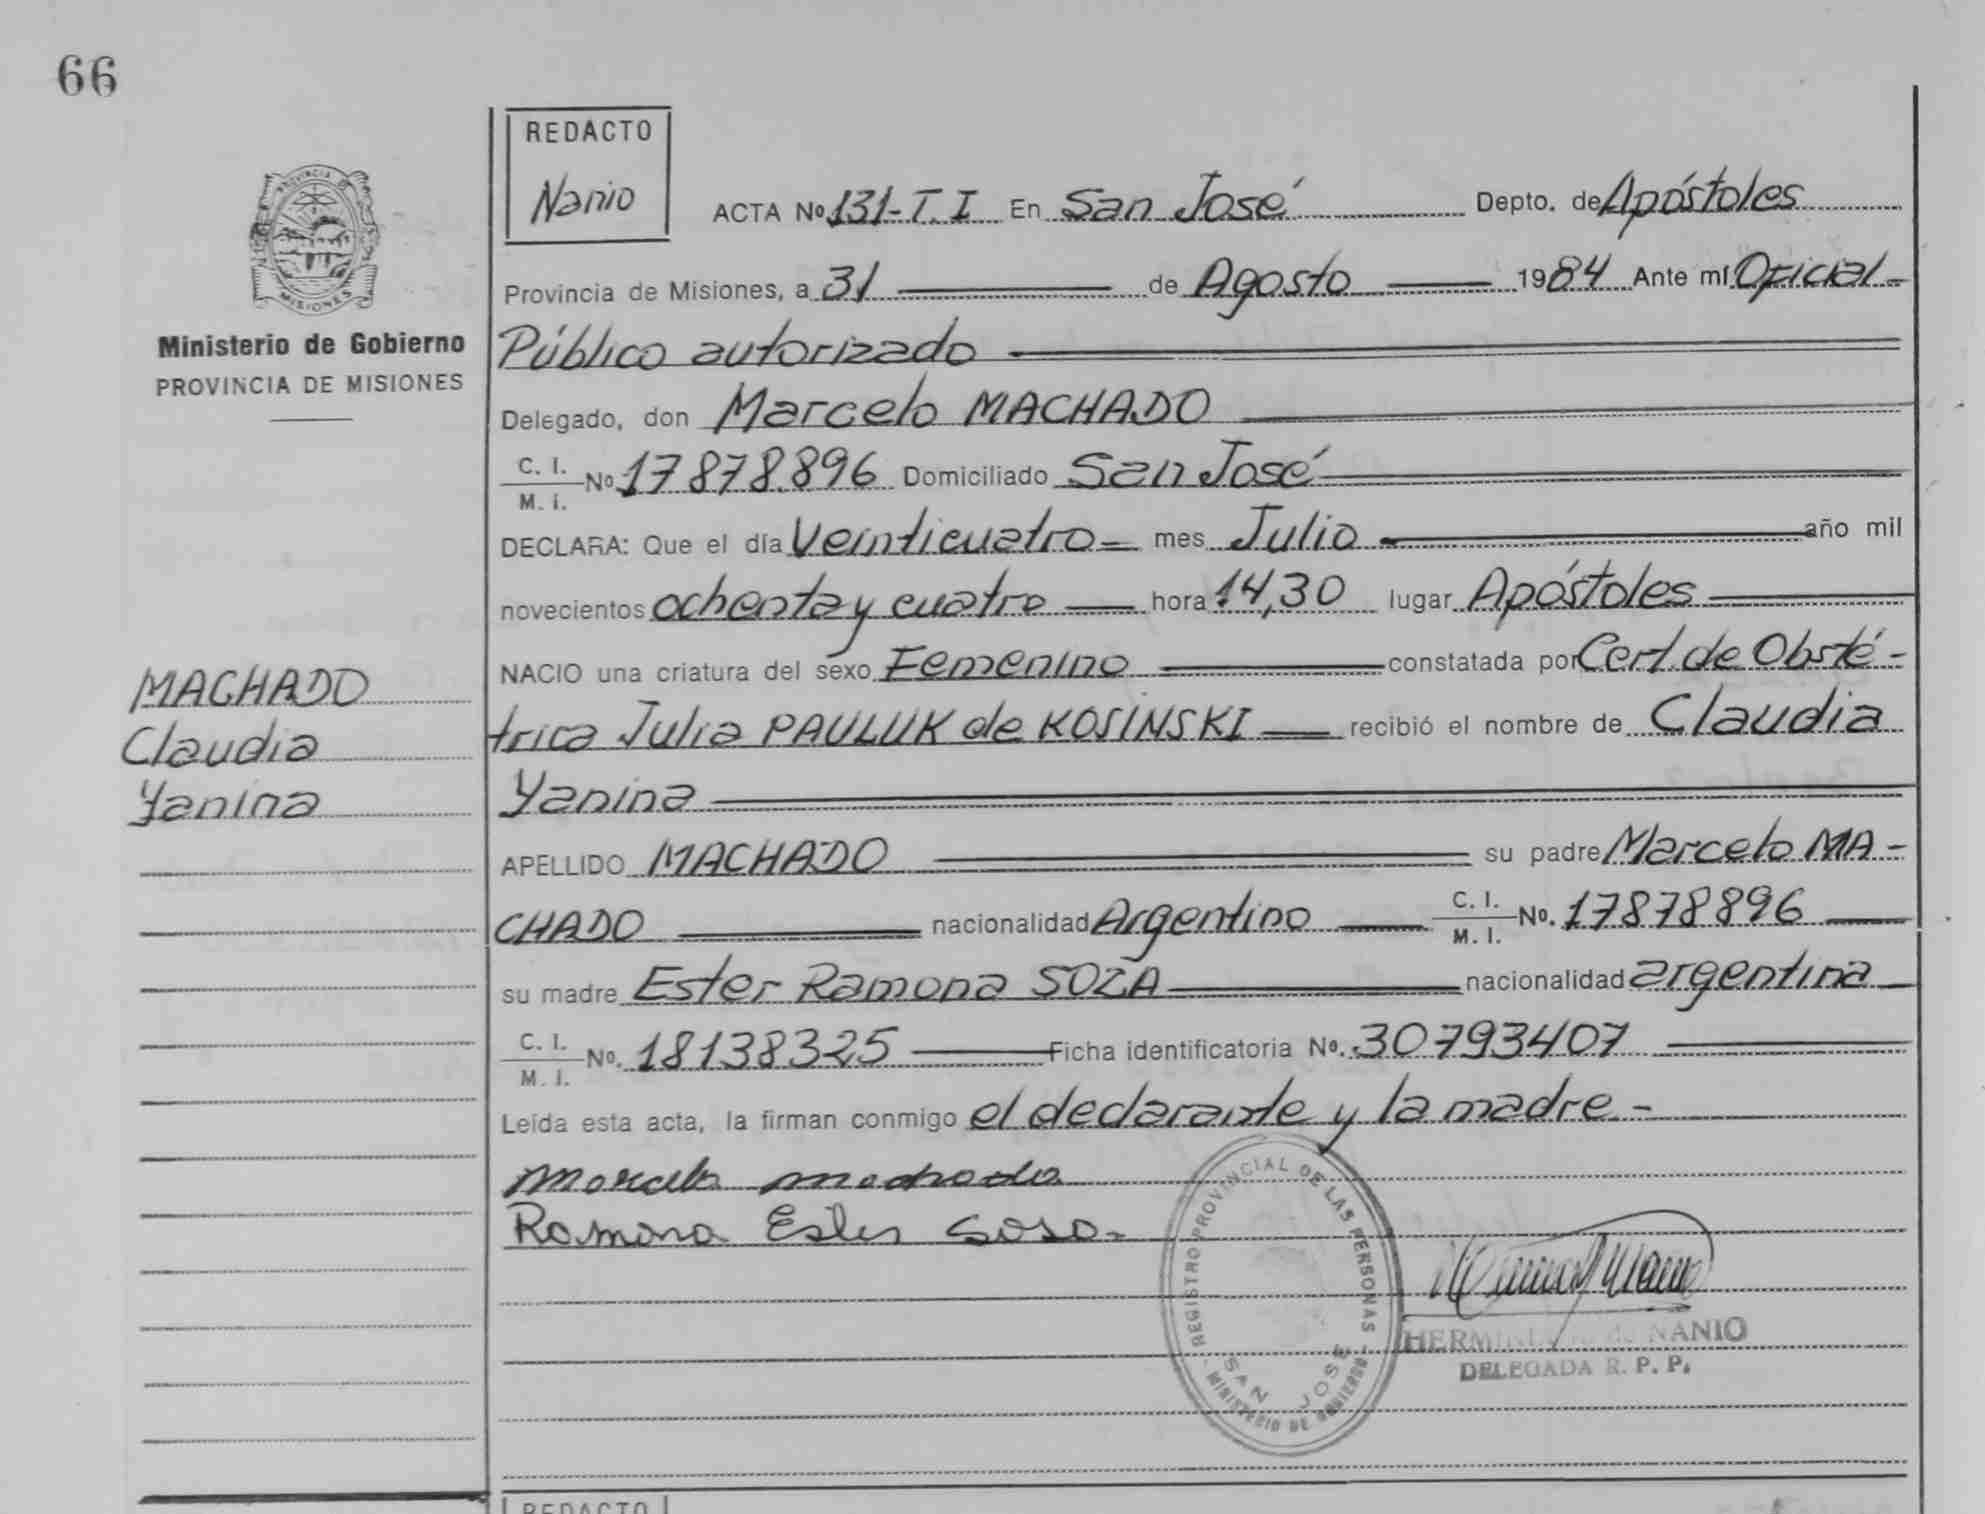 66
REDACTO
Nanio
ACTA Nº 131-T.I En San José Depto. de Apóstoles
Provincia de Misiones, a 31 de Agosto 1984 Ante mí Oficial-
Público autorizado
PROVINCIA DE
MISIONES
Ministerio de Gobierno
PROVINCIA DE MISIONES
Delegado, don Marcelo MACHADO
C. I.
M. I. Nº 17878.896 Domiciliado San José
DECLARA: Que el día Veinticuatro- mes Julio año mil
novecientos ochenta y cuatro hora 14,30 lugar Apóstoles
NACIO una criatura del sexo Femenino constatada por Cert. de Obsté-
trica Julia PAULUK de KOSINSKI recibió el nombre de Claudia
Yanina
MACHADO
Claudia
Yanina
APELLIDO MACHADO su padre Marcelo MA-
CHADO nacionalidad Argentino C. I.
M. I. Nº. 17878896
su madre Ester Ramona SOZA nacionalidad argentina
C. I.
M. I. Nº. 18138325 Ficha identificatoria Nº. 30793407
Leída esta acta, la firman conmigo el declarante y la madre-
Marcelo machado
Ramona Ester Sosa.
REGISTRO PROVINCIAL DE LAS PERSONAS
SAN JOSE
MINISTERIO DE GOBIERNO
NANIO
DELEGADA R. P. P.
REDACTO